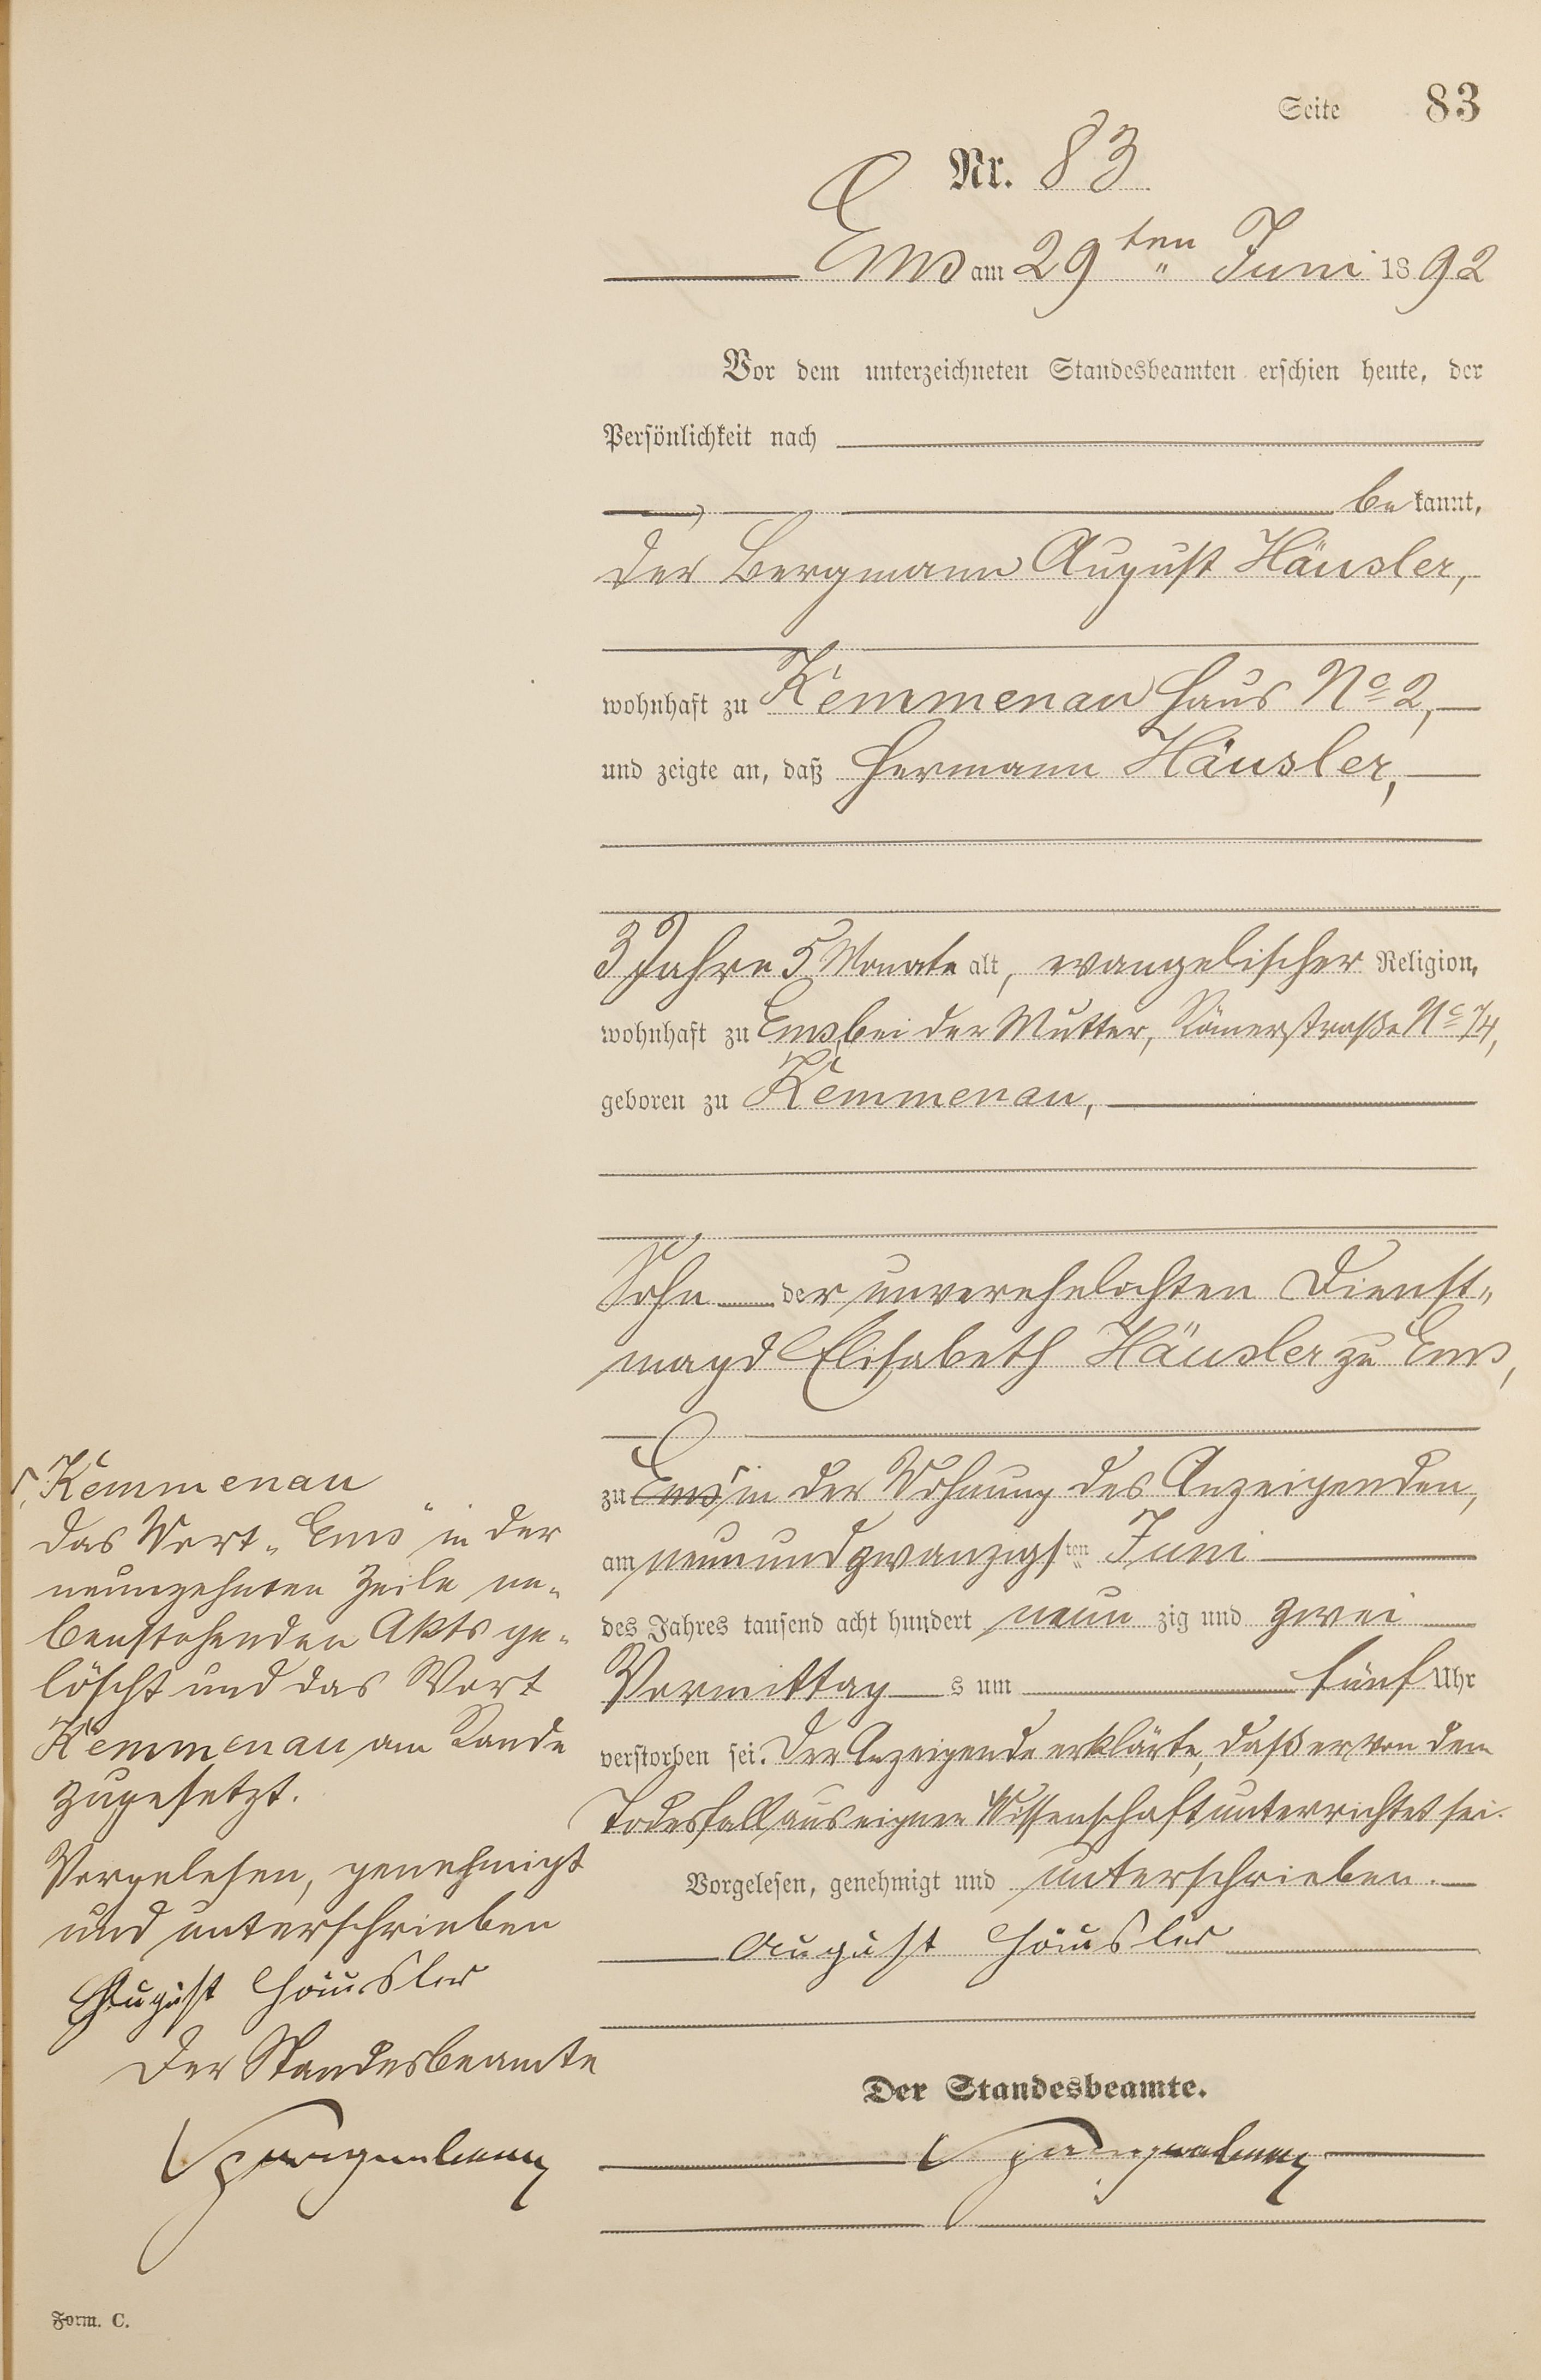 Seite 83
Nr. 83
Ems am 29ten " Juni 1892
Vor dem unterzeichneten Standesbeamten erschien heute, der
Persönlichkeit nach
bekannt,
der Bergmann August Häusler,
wohnhaft zu Kemmenau Haus No 2,
und zeigte an, daß Hermann Häusler,
3 Jahre 5 Monate alt, evangelischer Religion,
wohnhaft zu Ems, bei der Mutter, Römerstraße No 74,
geboren zu Kemmenau,
Sohn der unverehelichten Dienst„
magd Elisabeth Häusler zu Ems,
zu Ems in der Wohnung des Anzeigenden,
am neunundzwanzigsten Juni
des Jahres tausend acht hundert neunzig und zwei
Vormittags um fünf Uhr
verstorben sei. Der Anzeigende erklärte, daß er von dem
Todesfall aus eigner Wissenschaft unterrichtet sei.
Vorgelesen, genehmigt und unterschrieben.
August Häusler
Der Standesbeamte.
Kemmenau
Das Wort „Ems“ in der
neunzehnten Zeile ne„
benstehenden Akts ge„
löscht und das Wort
Kemmenau am Rande
zugesetzt.
Vorgelesen, genehmigt
und unterschrieben
August Häusler
Der Standesbeamte
Form. C.